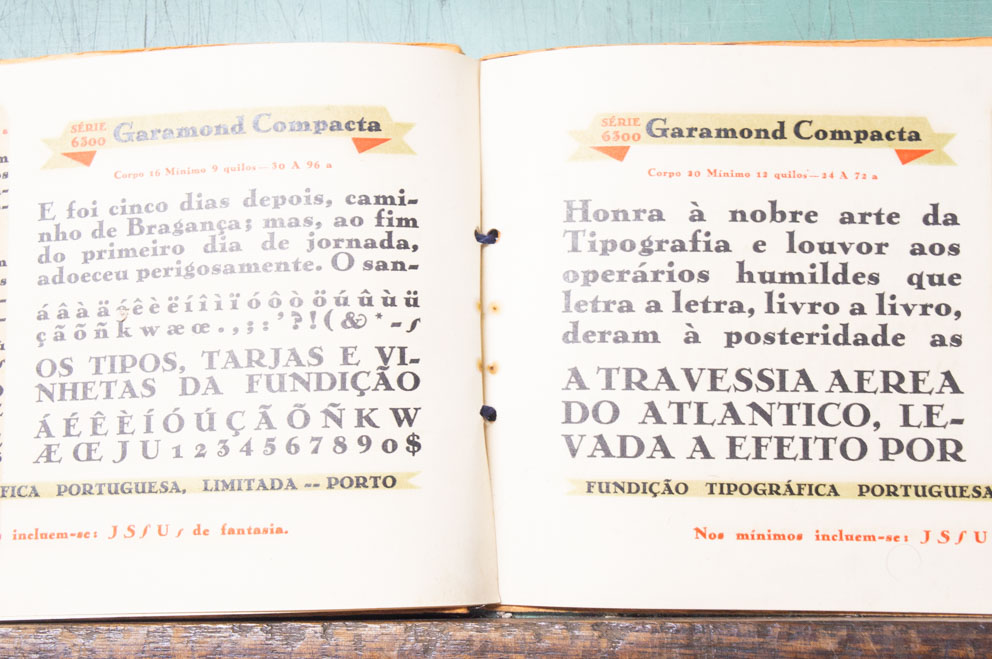 SÉRIE
6300
Garamond Compacta
Corpo 16 Mínimo 9 quilos — 30 A 96 a
E foi cinco dias depois, cami-
nho de Bragança; mas, ao fim
do primeiro dia de jornada,
adoeceu perigosamente. O san-
á â à ä é ê è ë í î ì ï ó ô ò ö ú û ù ü
ç ã õ ñ k w æ œ . , ; : ' ? ! ( & * - ſ
OS TIPOS, TARJAS E VI-
NHETAS DA FUNDIÇÃO
Á É Ê È Í Ó Ú Ç Ã Õ Ñ K W
Æ Œ J U 1 2 3 4 5 6 7 8 9 0 $
FICA PORTUGUESA, LIMITADA -- PORTO
incluem-se: J S ſ U ſ de fantasia.
SÉRIE
6300
Garamond Compacta
Corpo 20 Mínimo 12 quilos — 24 A 72 a
Honra à nobre arte da
Tipografia e louvor aos
operários humildes que
letra a letra, livro a livro,
deram à posteridade as
A TRAVESSIA AEREA
DO ATLANTICO, LE-
VADA A EFEITO POR
FUNDIÇÃO TIPOGRÁFICA PORTUGUESA
Nos mínimos incluem-se: J S ſ U